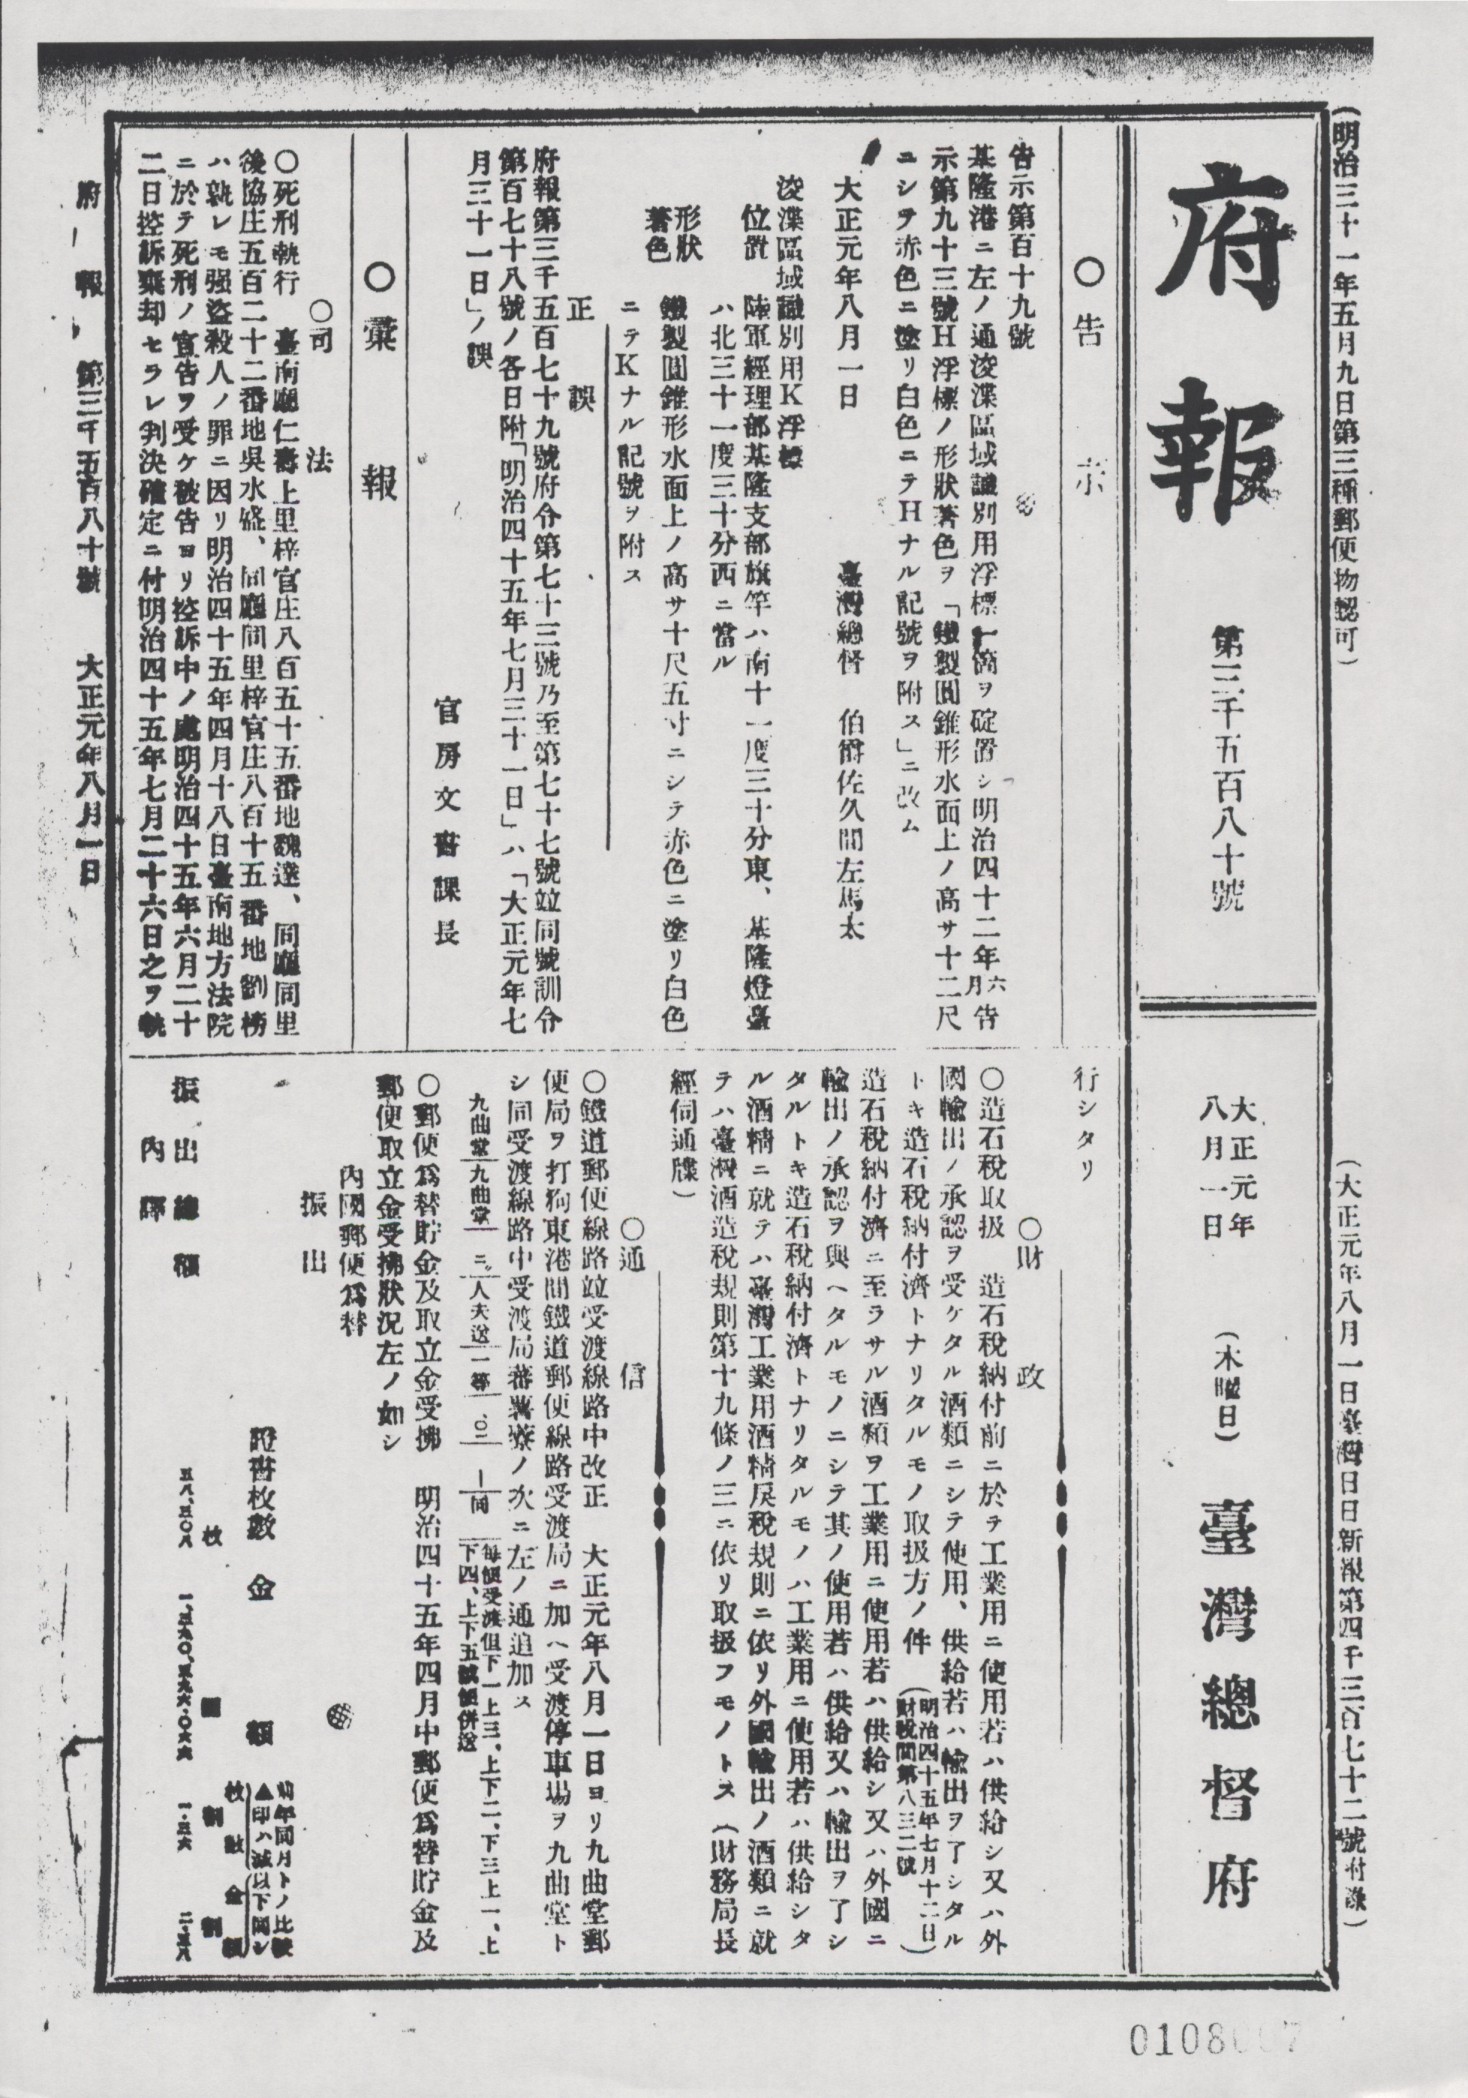 (明治三十一年五月九日第三種郵便物認可)
(大正元年八月一日臺灣日日新報第四千三百七十二號付錄)
府報
第三千五百八十號
大正元年
八月一日
(木曜日)
臺灣總督府
○告示
告示第百十九號
基隆港ニ左ノ通浚渫區域識別用浮標一箇ヲ碇置シ明治四十二年六月告
示第九十三號H浮標ノ形狀著色ヲ「鐵製圓錐形水面上ノ高サ十二尺
ニシヲ赤色ニ塗リ白色ニテHナル記號ヲ附ス」ニ改ム
大正元年八月一日
臺灣總督 伯爵佐久間左馬太
浚渫區域識別用K浮標
位置 陸軍經理部基隆支部旗竿ハ南十一度三十分東、基隆燈臺
ハ北三十一度三十分西ニ當ル
形狀
著色
鐵製圓錐形水面上ノ高サ十尺五寸ニシテ赤色ニ塗リ白色
ニテKナル記號ヲ附ス
正誤
府報第三千五百七十九號府令第七十三號乃至第七十七號竝同號訓令
第百七十八號ノ各日附「明治四十五年七月三十一日」ハ「大正元年七
月三十一日」ノ誤
官房文書課長
○彙報
○司法
○死刑執行 臺南廳仁壽上里梓官庄八百五十五番地魏達、同廳同里
後協庄五百二十二番地吳水盛、同廳同里梓官庄八百十五番地劉榜
ハ孰レモ强盜殺人ノ罪ニ因リ明治四十五年四月十八日臺南地方法院
ニ於テ死刑ノ宣告ヲ受ケ被告ヨリ控訴中ノ處明治四十五年六月二十
二日控訴棄却セラレ判決確定ニ付明治四十五年七月二十六日之ヲ執
行シタリ
○財政
○造石稅取扱 造石稅納付前ニ於テ工業用ニ使用若ハ供給シ又ハ外
國輸出ノ承認ヲ受ケタル酒類ニシテ使用、供給若ハ輸出ヲ了シタル
トキ造石稅納付濟トナリタルモノ取扱方ノ件(明治四十五年七月十二日
財稅間第八三二號)
造石稅納付濟ニ至ラサル酒類ヲ工業用ニ使用若ハ供給シ又ハ外國ニ
輸出ノ承認ヲ與ヘタルモノニシテ其ノ使用若ハ供給又ハ輸出ヲ了シ
タルトキ造石稅納付濟トナリタルモノハ工業用ニ使用若ハ供給シタ
ル酒精ニ就テハ臺灣工業用酒精戾稅規則ニ依リ外國輸出ノ酒類ニ就
テハ臺灣酒造稅規則第十九條ノ三ニ依リ取扱フモノトス(財務局長
經伺通牒)
○通信
○鐵道郵便線路竝受渡線路中改正 大正元年八月一日ヨリ九曲堂郵
便局ヲ打狗東港間鐵道郵便線路受渡局ニ加ヘ受渡停車場ヲ九曲堂ト
シ同受渡線路中受渡局蕃薯藔ノ次ニ左ノ通追加ス
九曲堂 九曲堂 ニ 人夫送 一等 一、〇二 一同 每便受渡但下一上三、上下二、下三上一、上
下四、上下五號便併送
○郵便爲替貯金及取立金受拂 明治四十五年四月中郵便爲替貯金及
郵便取立金受拂狀況左ノ如シ
內國郵便爲替
振出
證書枚數 金額
前年同月トノ比較
▲印ハ減以下同シ
枚數 金額
枚 圓 割 割
振出總額 五八、三〇八 一、三九〇、五九六・〇六六 一・三六 二・五八
內譯
府報 第三千五百八十號 大正元年八月一日